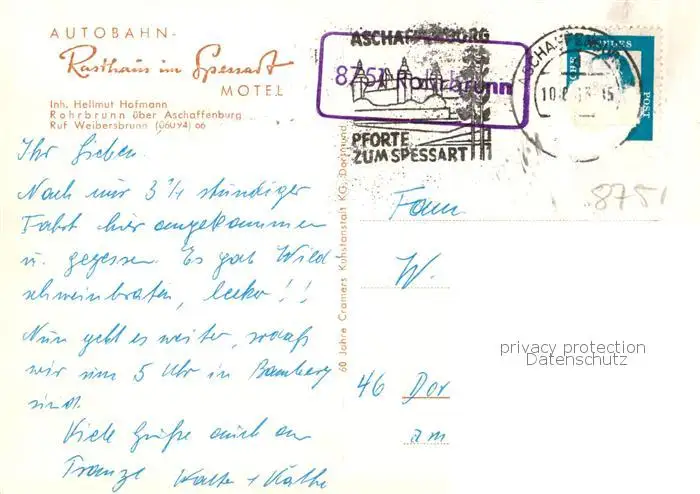 AUTOBAHN-
Rasthaus im Spessart
MOTEL
Inh. Hellmut Hofmann
Rohrbrunn über Aschaffenburg
Ruf Weibersbrunn (06094) 66
Ihr Lieben.
Nach nur 3 1/4 stündiger
Fahrt hier angekommen
u. gegessen. Es gab Wild
schweinbraten, lecker!!
Nun geht es weiter, sodaß
wir um 5 Uhr in Bamberg
sind.
Viele Grüße auch an
Walter + Käthe
60 Jahre Cramers Kunstanstalt KG, Dortmund
ASCHAFFENBURG
PFORTE
ZUM SPESSART
8751 Rohrbrunn
POST
8751
Fam
W.
46 Dor
am
privacy protection
Datenschutz